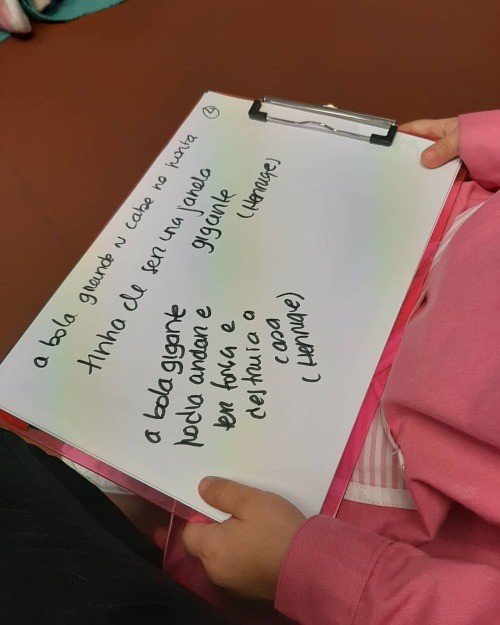 ④
a bola grande ñ cabe na porta
tinha de ser uma janela
gigante
(Henrique)
a bola gigante
podia andar e
tem força e
destruia a
casa
(Henrique)